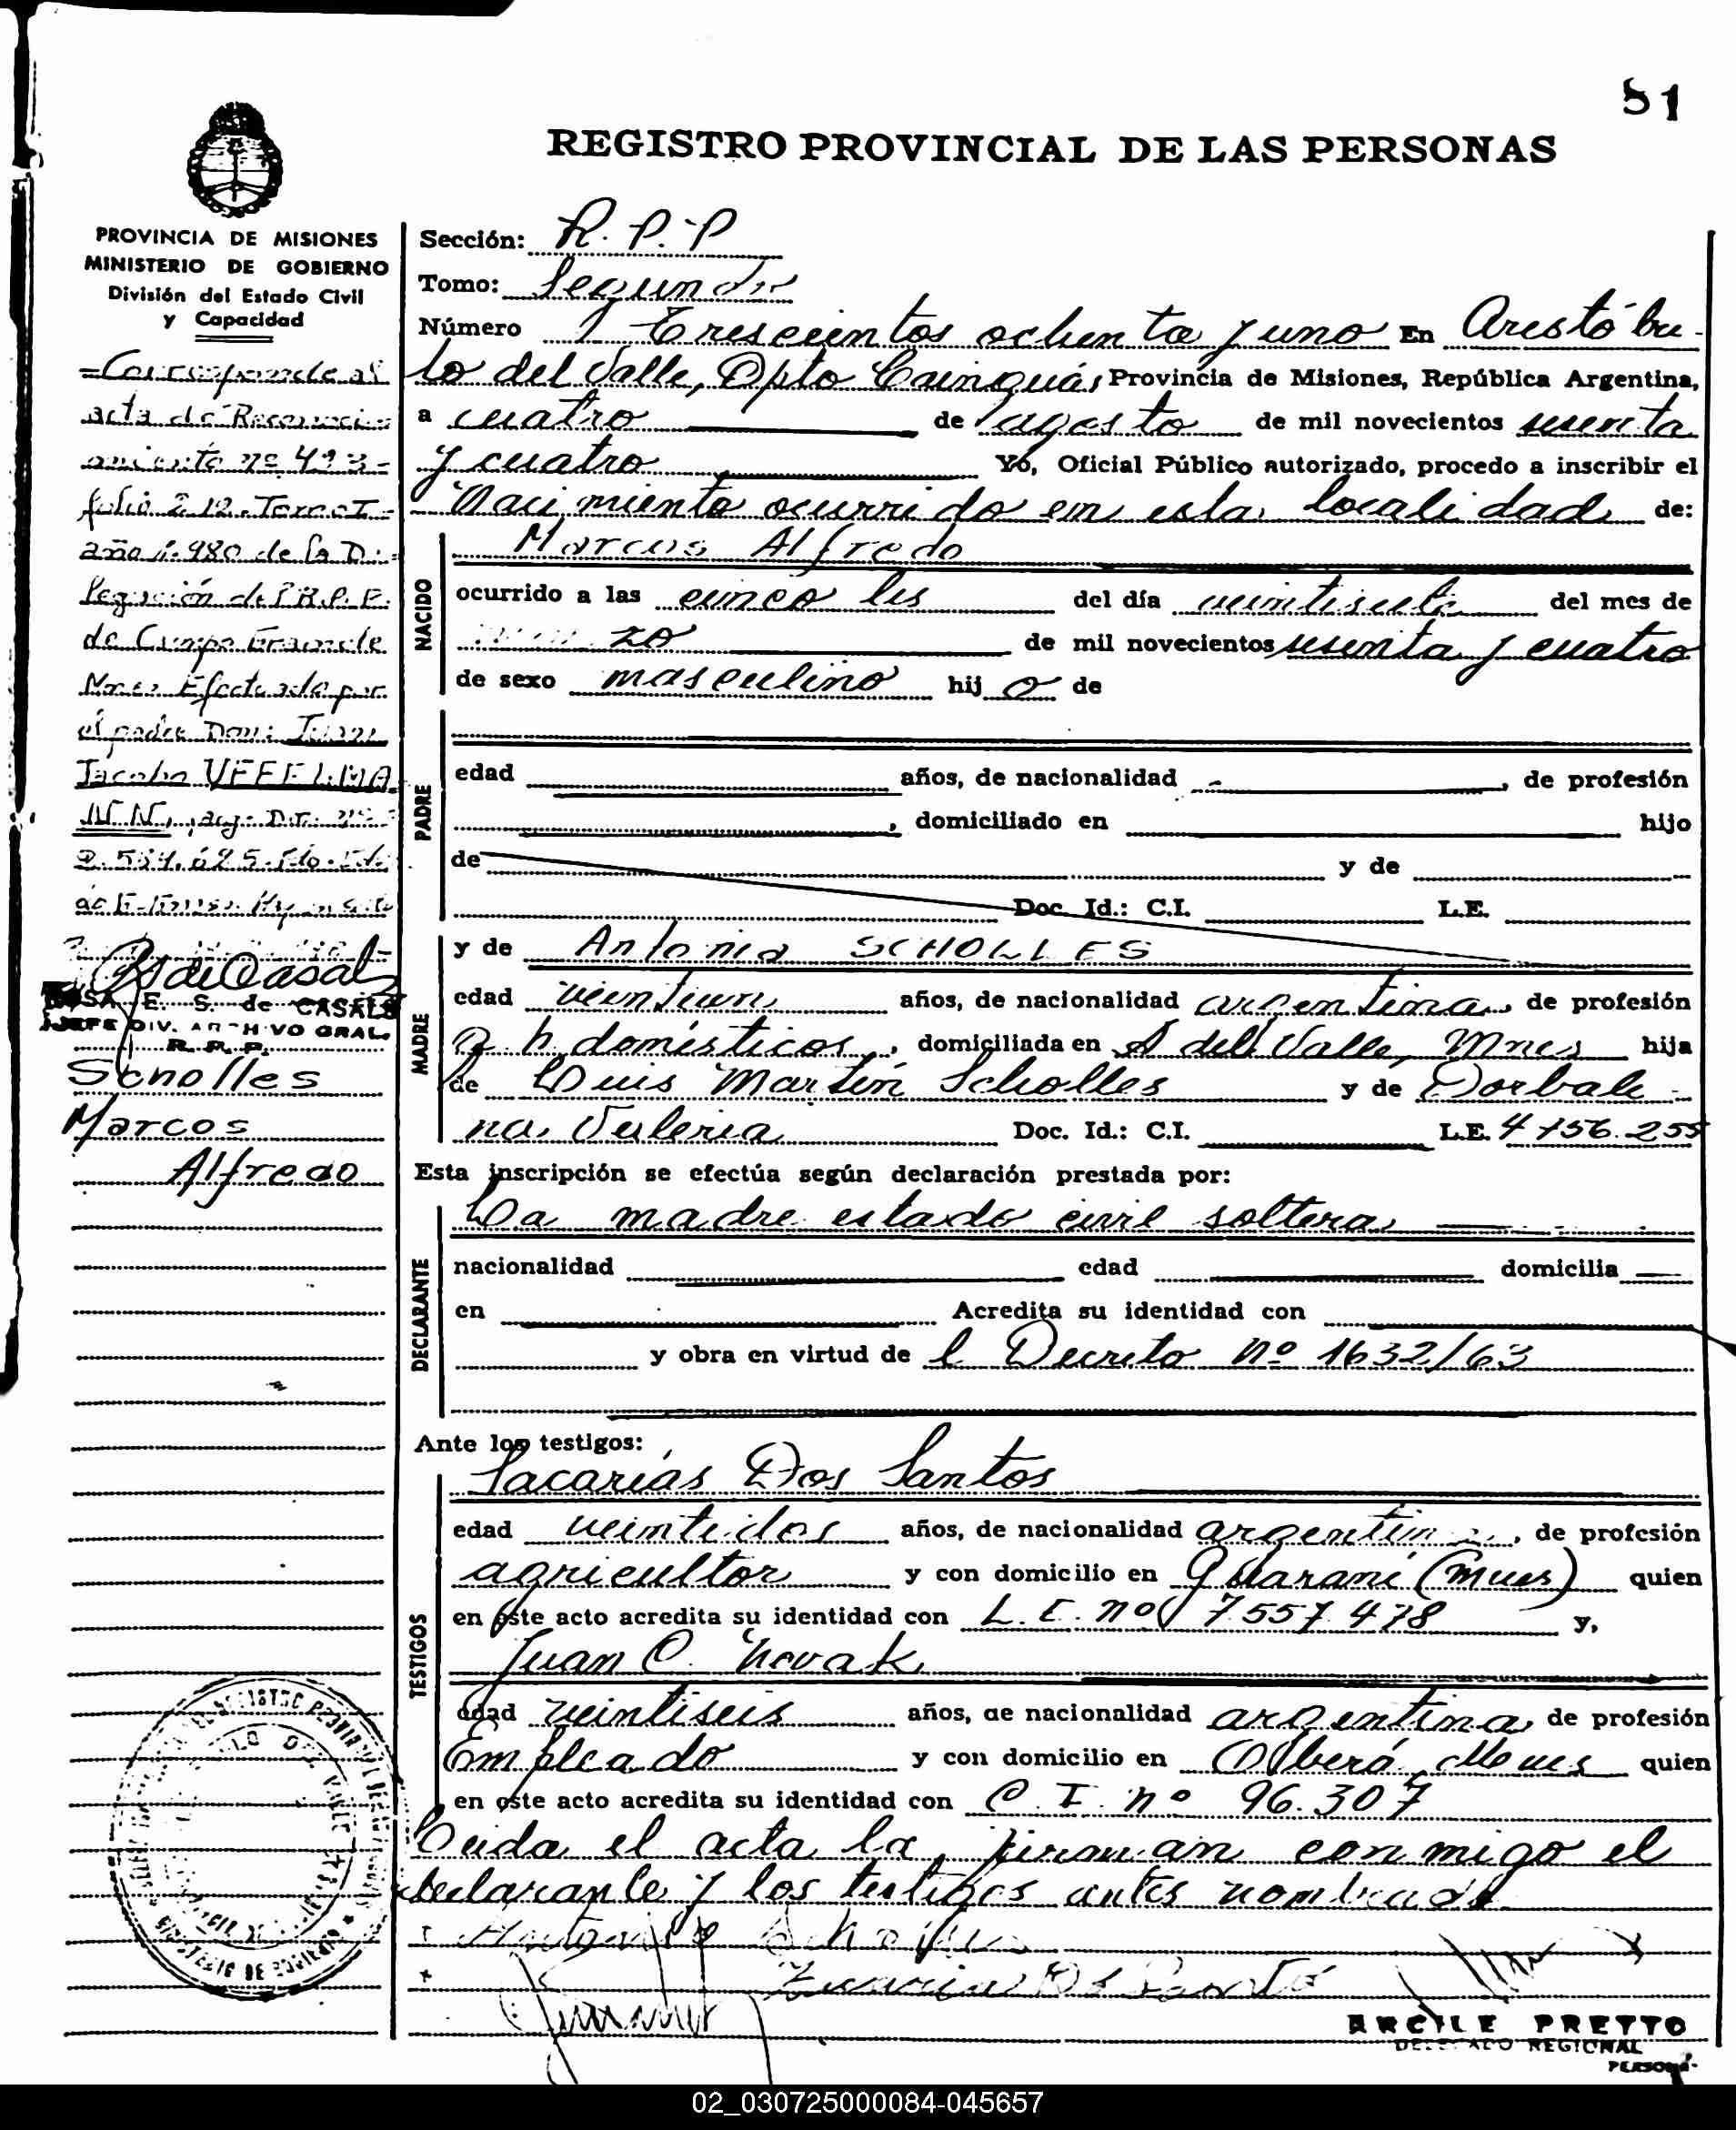 81
REGISTRO PROVINCIAL DE LAS PERSONAS
PROVINCIA DE MISIONES
MINISTERIO DE GOBIERNO
División del Estado Civil
y Capacidad
=Corresponde al
acta de Reconoci=
amiento nº 493=
folio 212. Tomo I=
año 1.980 de la D:=
legación del R.P.P.
de Campo Grande
Mnes. Efectuada por
el padre Don: Juan
Jacobo UFFELMA
NN, arg. D.I. nº
RdeCasals
ROSA E. S. de CASALS
JEFE DIV. ARCHIVO GRAL.
R. P. P.
Scholles
Marcos
Alfredo
Sección: R. P. P
Tomo: Segundo
Número Trescientos ochenta y uno En Aristóbu-
lo del Valle, Dpto Cainguás Provincia de Misiones, República Argentina,
a cuatro de agosto de mil novecientos sesenta
y cuatro Yo, Oficial Público autorizado, procedo a inscribir el
Nacimiento ocurrido en esta localidad de:
NACIDO
Marcos Alfredo
ocurrido a las cinco hs del día veintisiete del mes de
de mil novecientos sesenta y cuatro
de sexo masculino hijo de
PADRE
edad años, de nacionalidad , de profesión
, domiciliado en hijo
de y de
Doc. Id.: C.I. L.E.
MADRE
y de Antonia SCHOLLES
edad veintiun años, de nacionalidad argentina, de profesión
q h domésticos, domiciliada en A del Valle, Mnes hija
de Luis Martín Scholles y de Dorbali-
na Valeria Doc. Id.: C.I. L.E. 4.156.255
Esta inscripción se efectúa según declaración prestada por:
DECLARANTE
La madre estado civil soltera
nacionalidad edad domicilia
en Acredita su identidad con
y obra en virtud de l Decreto nº 1632/63
Ante los testigos:
TESTIGOS
Sacarías Dos Santos
edad veintidos años, de nacionalidad argentina, de profesión
agricultor y con domicilio en Guaraní (Mnes) quien
en este acto acredita su identidad con L. E. nº 7557478 y,
Juan C. Novak
edad veintiseis años, de nacionalidad argentina, de profesión
Empleado y con domicilio en Oberá, Mnes quien
en este acto acredita su identidad con C. I. nº 96.307
Leida el acta la firman conmigo el
declarante y los testigos antes nombrado
Antonia Scholles
Zacaria Ds Santo
ARCILE PRETTO
DELEGADO REGIONAL
02_030725000084-045657